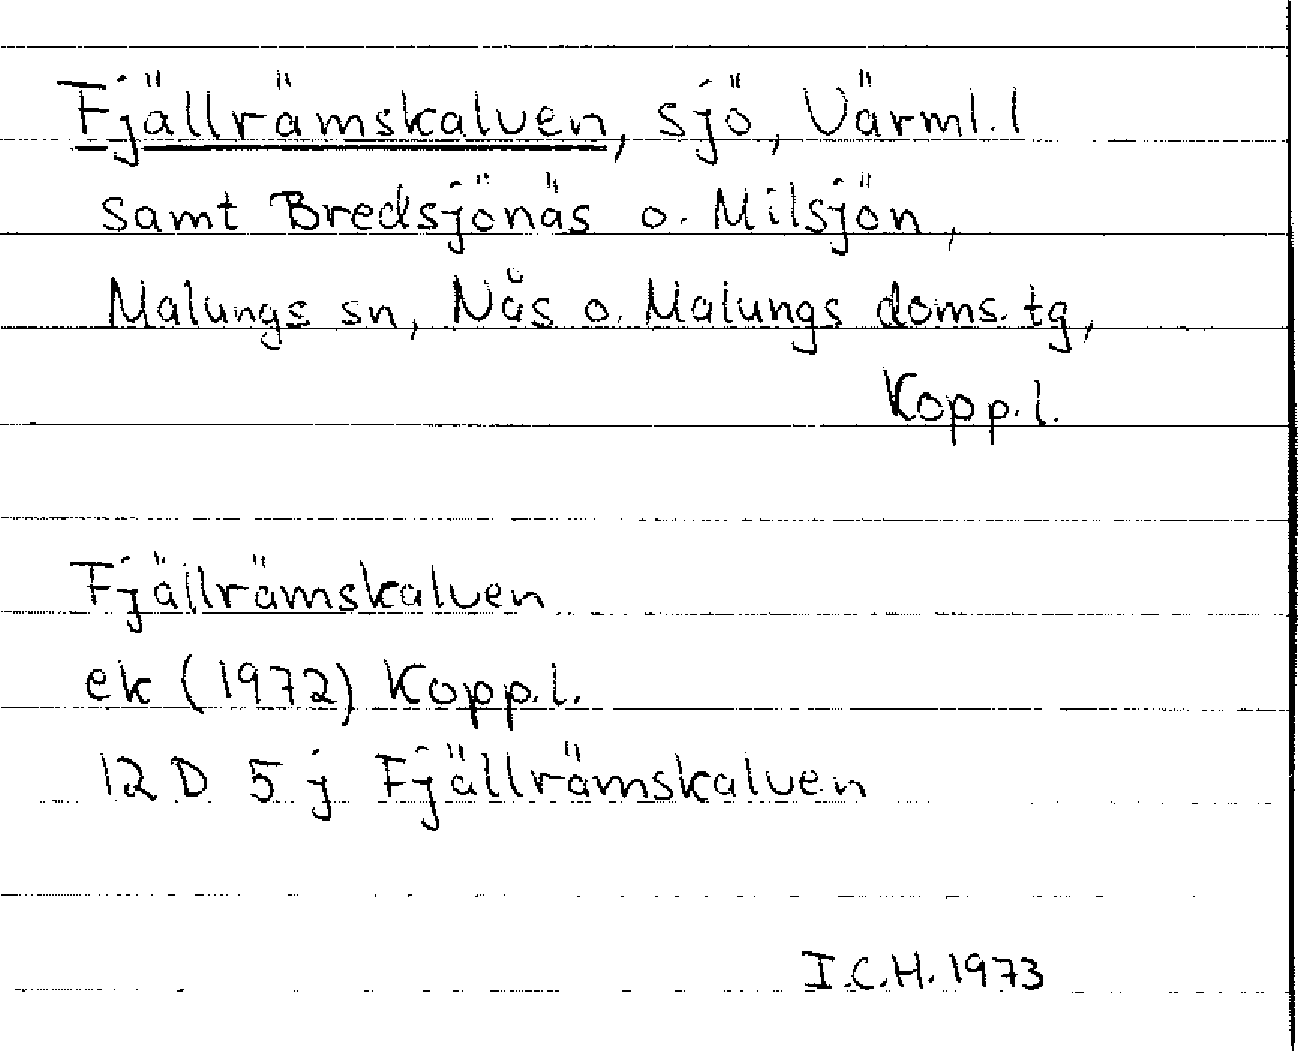 Fjällrämskalven, sjö, Värml. l
samt Bredsjönäs o. Milsjön,
Malungs sn, Näs o. Malungs doms. tg,
Kopp. l.
Fjällrämskalven
ek (1972) Kopp. l.
12 D 5 j Fjällrämskalven
I.C.H. 1973